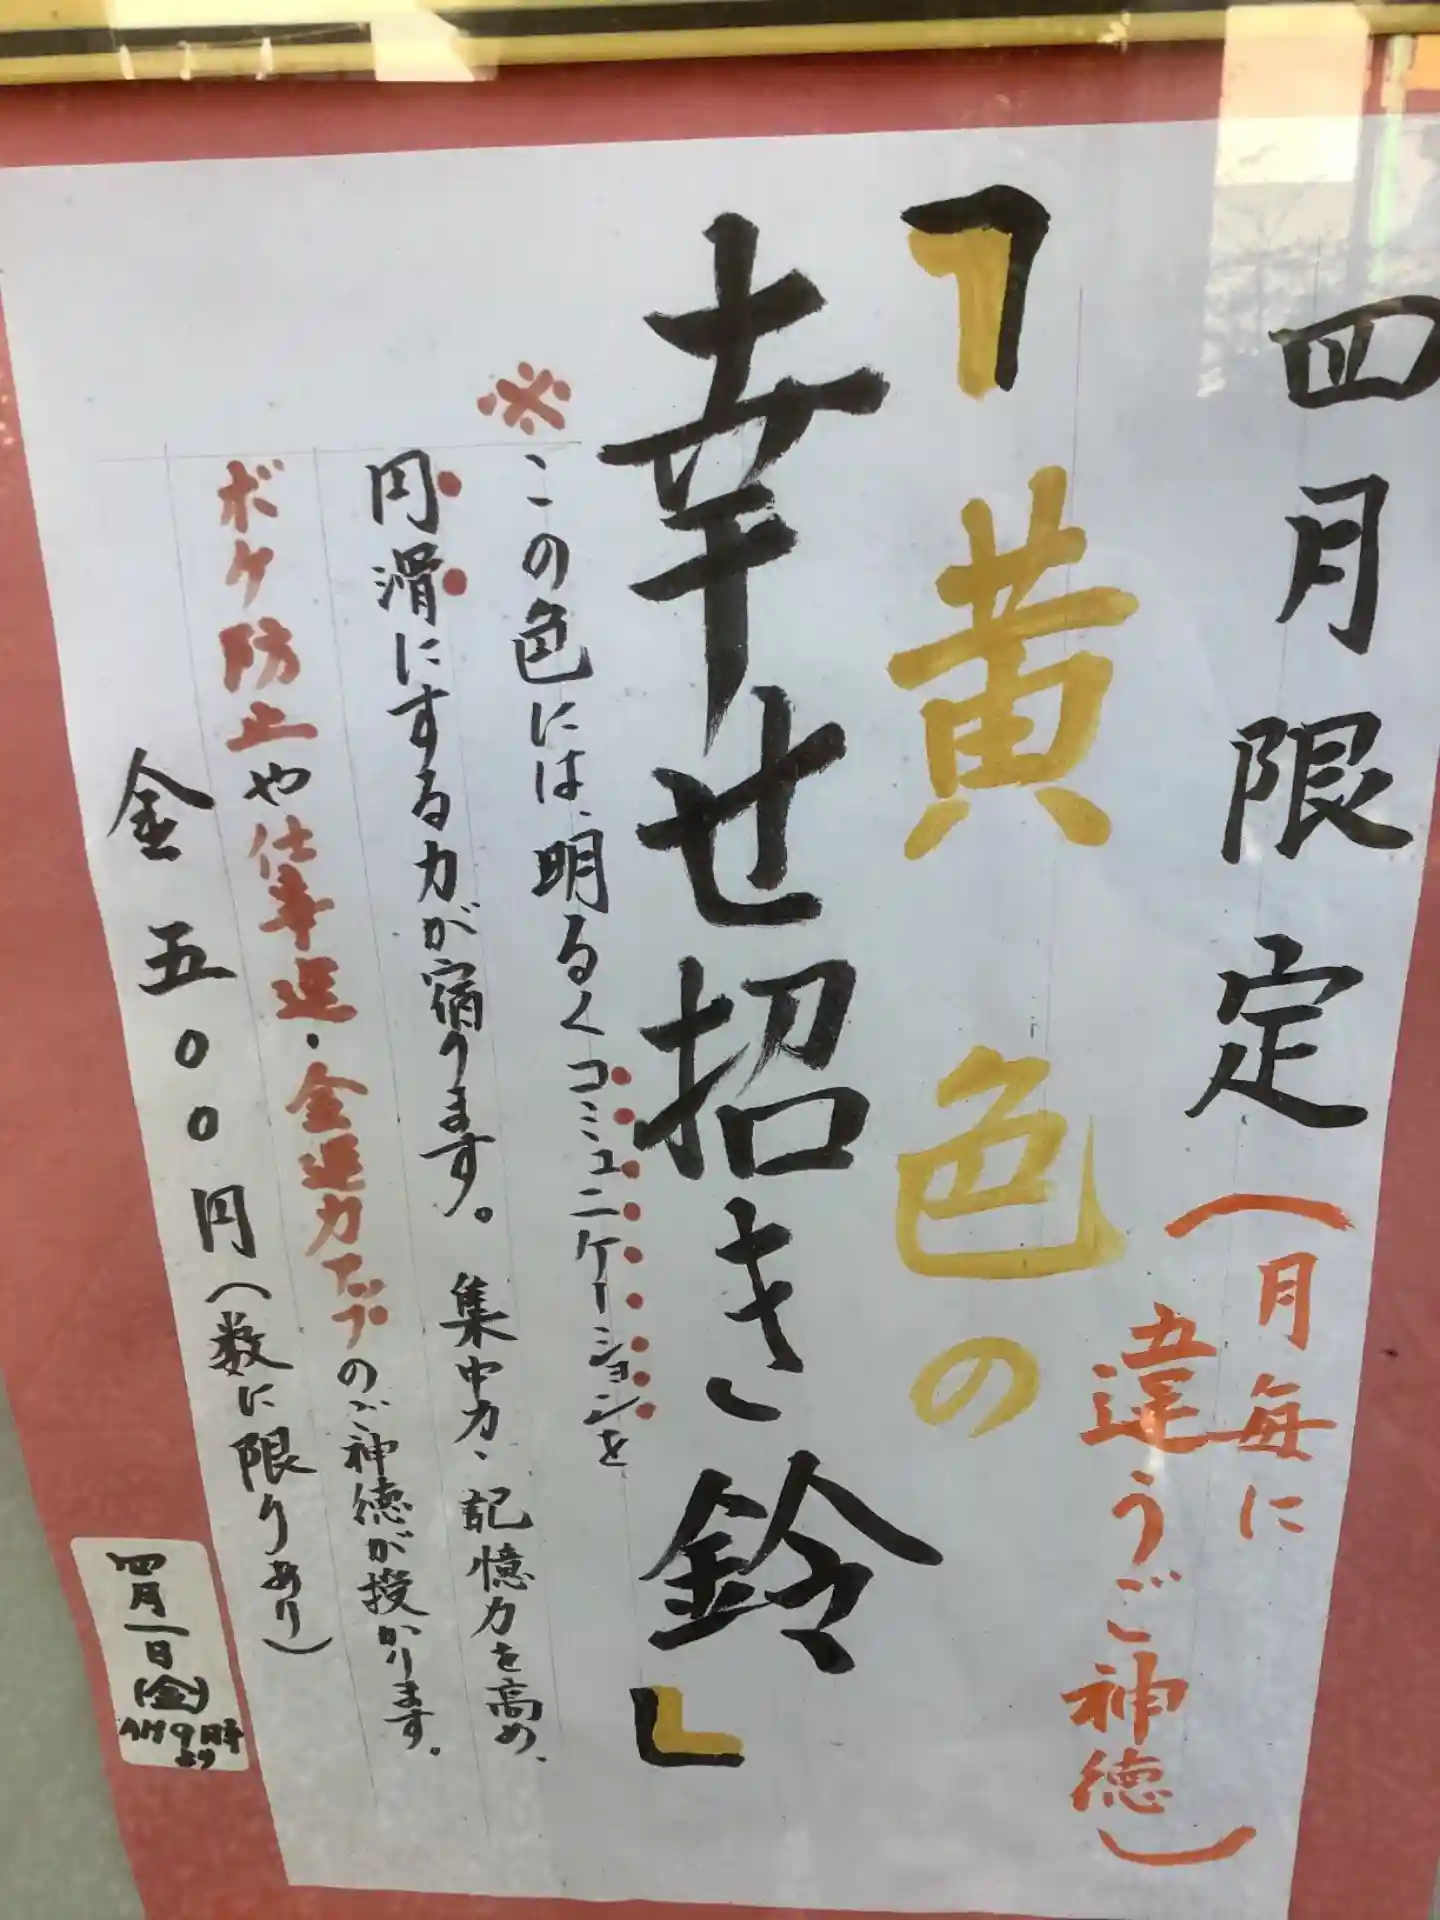 四月限定(月毎に
違うご神徳)
「黄色の
幸せ招き鈴」
※この色には、明るくコミュニケーションを
円滑にする力が宿ります。集中力、記憶力を高め、
ボケ防止や仕事運・金運力アップのご神徳が授かります。
金五〇〇円(数に限りあり)
四月一日
(金)
AM9時
より